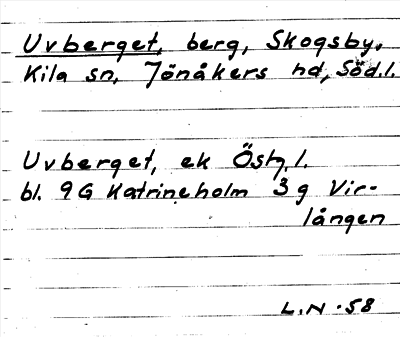 Uvberget, berg, Skogsby,
Kila sn, Jönåkers hd, Söd.l.
Uvberget, ek Östg.l.
bl. 9G Katrineholm 3g Vir-
lången
L.N. 58